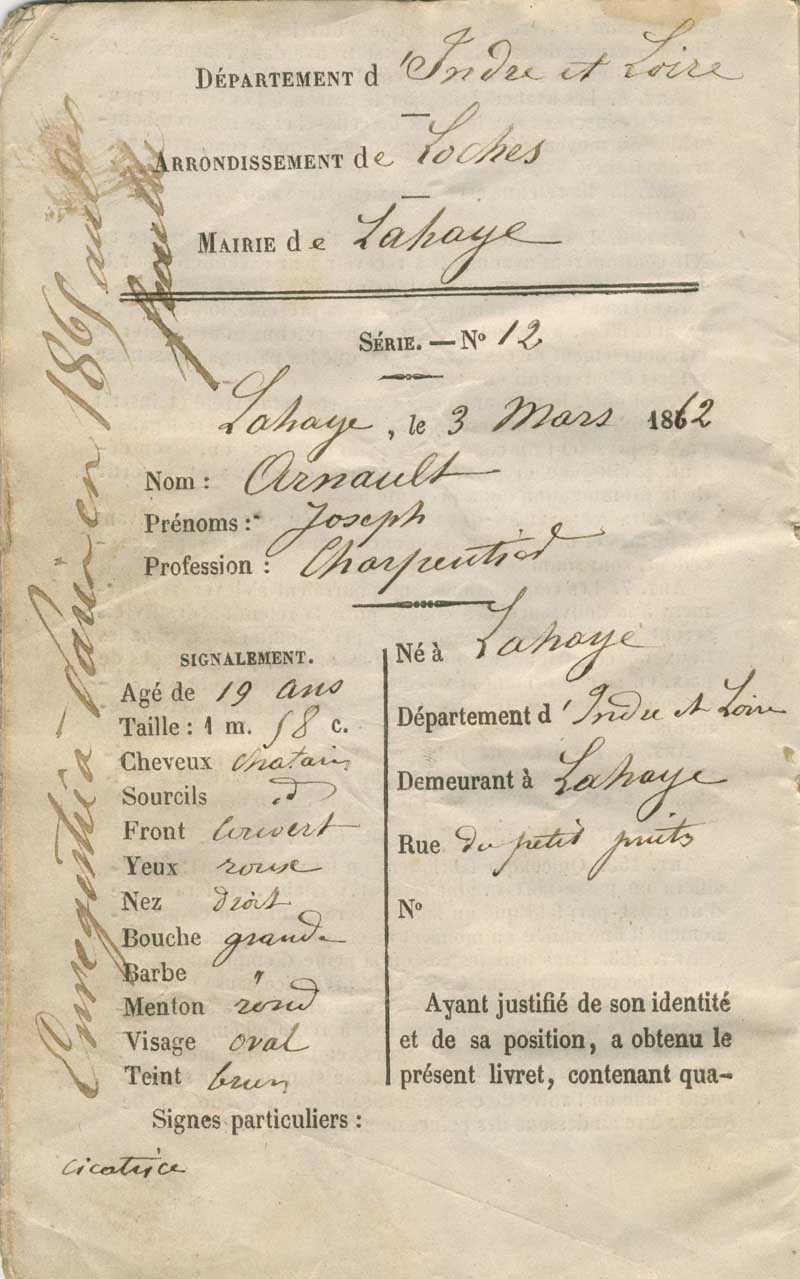 DÉPARTEMENT d'Indre et Loire
ARRONDISSEMENT de Loches
MAIRIE de Lahaye
SÉRIE. — Nº 12
Lahaye, le 3 Mars 1862
Nom : Arnault
Prénoms : Joseph
Profession : Charpentier
SIGNALEMENT.
Agé de 19 ans
Taille : 1 m. 58 c.
Cheveux chatain
Sourcils d
Front couvert
Yeux roux
Nez droit
Bouche grande
Barbe "
Menton rond
Visage oval
Teint brun
Signes particuliers :
cicatrice
Né à Lahaye
Département d'Indre et Loire
Demeurant à Lahaye
Rue du petit puits
Nº
Ayant justifié de son identité
et de sa position, a obtenu le
présent livret, contenant qua-
en 1865